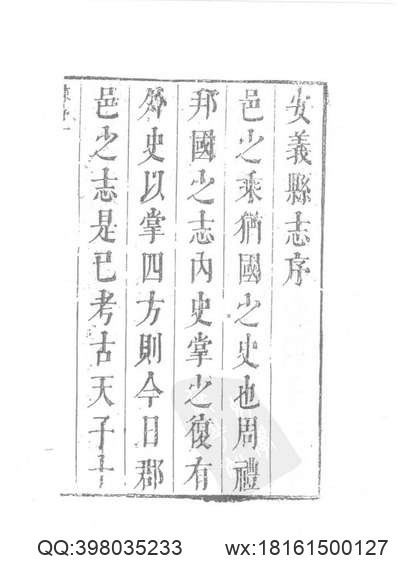 安義縣志序
邑之乘猶國之史也周禮
邦國之志內史掌之復有
外史以掌四方則今日郡
邑之志是已考古天子十
QQ:398035233 wx:18161500127